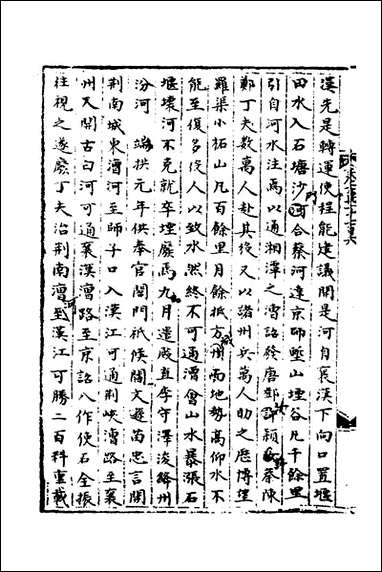 漢先是轉運使程能建議開是河自襄漢下向口置堰
田水入石塘沙河合蔡河達京師塹山堙谷凡千餘里
引自河水注焉以通湘潭之漕詔發唐鄧許潁蔡陳
鄭丁夫數萬人赴其役又以諸州兵萬人助之歷博望
羅渠小柘山凡百餘里月餘抵方城而地勢高仰水不
能至復多役人以致水然終不可通漕會山水暴漲石
堰壞河不克就卒堙廢焉九月遣殿直李守澤浚絳州
汾河 端拱元年供奉官閤門祇候閻文遜苗忠言開
荆南城東漕河至師子口入漢江可通荆峽漕路至襄
州又開古白河可通襄漢漕路至京詔八作使石全振
往視之遂廢丁夫治荆南漕河至漢江可勝二百料重載